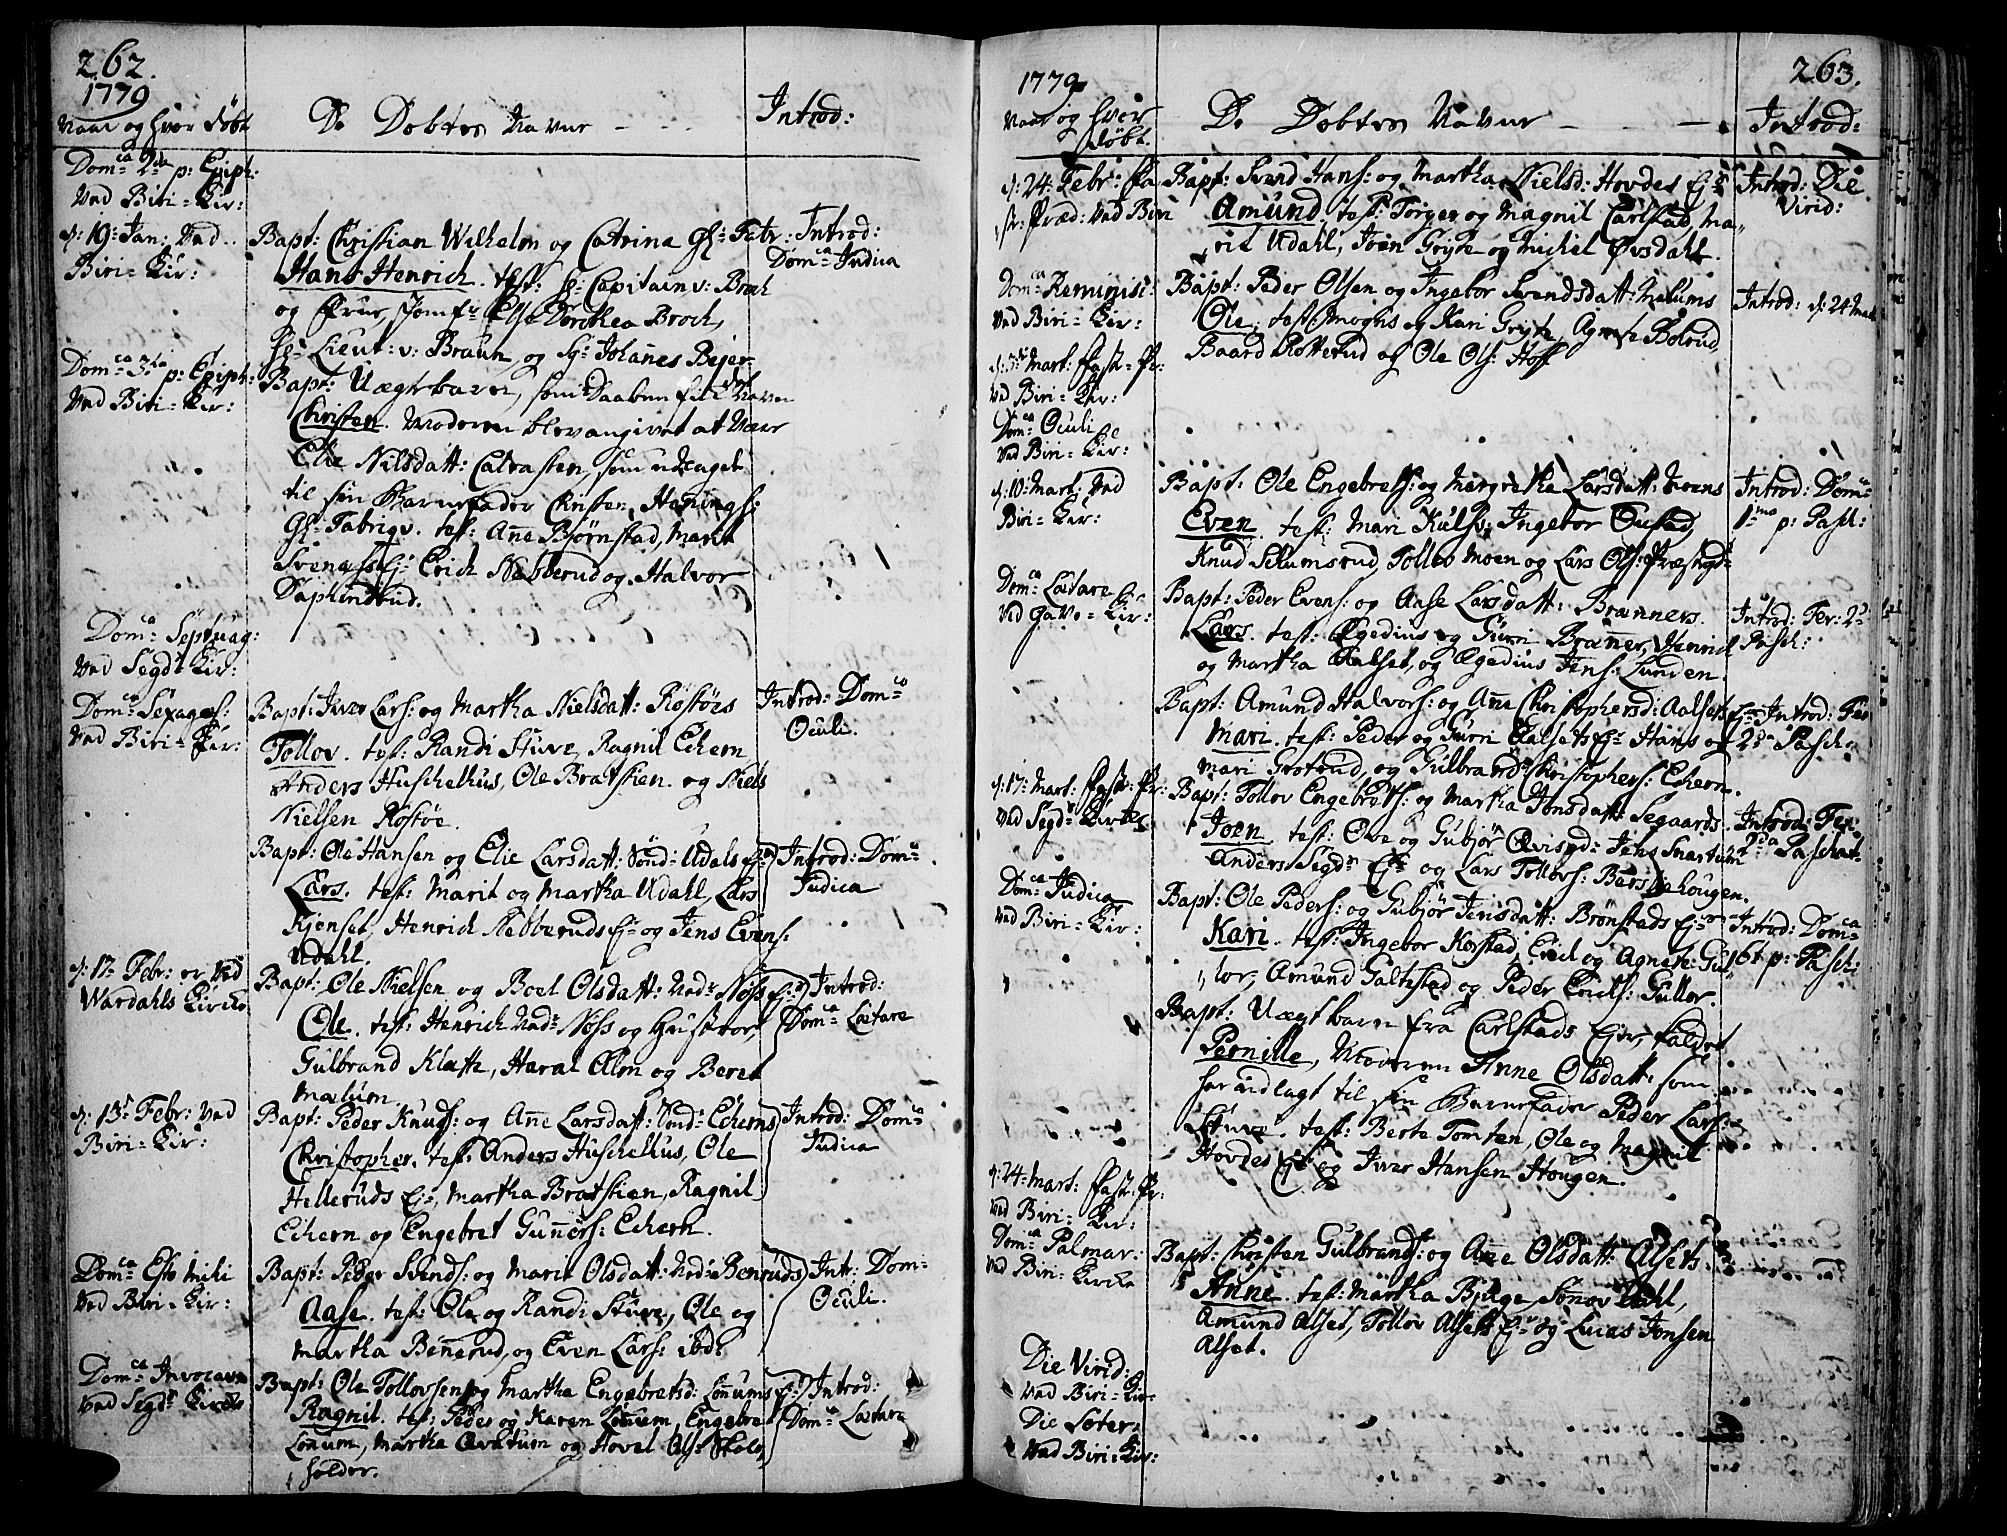 262.
1779
Naar og hvor døbt
De Døbtes Navne
Introd:
Dom:ca 2da p: Epiph:
Ved Biri-Kir:
d: 19: Jan: Ved
Biri-Kir:
Bapt: Christian Wilhelm og Catrina Gl: Fabr:
Hans Henrich. test: Hr Capitain v: Broch
og Frue, Jomfr Else Dorothea Broch,
Hr Lieut: v: Braun, og Sr Johanes Bejer
Introd:
Dom:ca Judica
Dom:ca 3tia p: Epiph:
Ved Biri-Kir:
Bapt: Uægte barn, som i Daaben fik Navn
Christen. Moderen blev angivet at være
Elie Nilsdatt: Calrasten, som udlagt
til sin Barnefader Christen Hanings:
Gl: Fabriqv. test: Ane Bjørnstad, Marit
Svenæs Ej: Erich Næbberud og Halvor
Daphinrud.
Dom:ca Septuag:
Ved Segd: Kir:
Dom:ca Sexages:
Ved Biri-Kir:
Bapt: Iver Lars: og Martha Nielsdatt: Rostøes
Tollov. test: Randi Stuve, Ragnil Echern
Anders Huschelhus, Ole Bratstien og Niels
Nielsen Rostøe.
Introd: Dom:ca
Oculi.
Bapt: Ole Hansen og Elie Larsdatt: Sønd: Udals Ej:
Lars. test: Marit og Martha Udahl, Lars
Kjønset, Henrich Næbberuds Ej: og Jens Evens:
Udahl.
Introd: Dom:ca
Judica
d: 12 Febr: er ved
Wardahls Kirche
Bapt: Ole Nielsen og Boel Olsdatt: Ned: Nøss Ej:
Ole. test: Henrich Ned: Nøss og Hustror,
Gulbrand Klæth, Haral Ælm og Beret
Mælum.
Introd:
Dom:ca Lætare
d: 13 Febr: ved
Biri-Kir:
Bapt: Peder Knuds: og Ane Larsdatt: Sønd: Echerns
Christopher. test: Anders Huschelhus, Ole
Helleruds Ej: Martha Bratstien, Ragnil
Echern og Engebret Gunners: Echern.
Introd: Dom:ca
Judica
Dom:ca Esto mihi
Ved Biri-Kir:
Bapt: Peder Svends: og Marit Olsdatt: Ned: Benruds
Aase. test: Ole og Randi Stuve, Ole og
Martha Bennerud, og Even Lars: ibd:
Intr: Dom:
Oculi.
Dom:ca Invocavit
Ved Segd: Kirche
Bapt: Ole Tollovsen og Martha Engebretsd: Lønums Ej:
Ragnil. test: Peder og Karen Lønum, Engebret
Lønum, Martha Øvatum og Hovel Ols: Skole
holder.
Introd:
Dom:ca Lætare
1779
263.
Naar og hver
døbt.
De Døbtes Navne
Introd:
d: 24: Febr: Fa
ste: Præd: Ved Biri
Bapt: Svend Hans: og Martha Nielsd: Hovdes Ej:
Amund. test: Torger og Magnil Carlstad, Ma,
rit Udahl, Joen Gryte og Michel Øvsdahl.
Introd: Die
Virid:
Dom:ca Reminisc:
Ved Biri-Kir:
Bapt: Peder Olsen og Ingebor Svendsdatt: Mælums
Ole. test: Moghs og Kari Gryte, Agnete Bolrud,
Baard Rotterud og Ole Ols: Hoff
Introd: d: 24 Mart
d: 3 Mart: Fast-Pr:
Ved Biri-Kir:
Dom:ca Oculi
Ved Biri-Kir:
d: 10: Mart: Ved
Biri-Kir:
Bapt: Ole Engebrets: og Margretha Larsdatt: Moens
Even. test: Mari Kulsv: Ingebor Øustad,
Knud Skumsrud, Tollov Moen og Lars Ols: Præstgd
Introd: Dom:ca
1:ma p: Pasch:
Dom:ca Lætare
Ved Gave-Kir:
Bapt: Peder Evens: og Anse Larsdatt: Bræners.
Lars. test: Egedius og Gurri Bræner, Henrich
og Martha Aalset, og Egedius Jens: Lunden
Introd: Fer: 2d
Pasch:
Bapt: Amund Halvors: og Ane Christophersd: Aalsets Ej:
Mari. test: Peder og Gurri Aalsets Ej: Hans og
Mari Grotrud og Gulbrand Christophers: Echern.
Introd: Fer
2da Pasch:
d: 17: Mart: Fast-Pr:
Ved Segd: Kirche
Bapt: Tollov Engebrets: og Martha Jonsdatt: Segaards
Joen. test: Ove og Gubjør Øvisgd: Jens Snartum
Anders Segd: Ej: og Lars Tollovs: Børs hougen.
Introd: Fer:
2da Paschat:
Dom:ca Judica
Ved Biri-Kir:
Bapt: Ole Peders: og Gubjør Jensdatt: Brønstads Ej:
Kari. test: Ingebor Korstad, Erich og Agnete Gul,
lor, Amund Galtestad og Peder Erichs: Gullor.
Introd: Dom:ca
6t p: Pasch:
Bapt: Uægte barn fra Carlstads Ejer, kaldet
Pernille, Moderen Anne Olsdatt: som
har udlagt til sin Barnefader Peder Lars:
Stuve. test: Berte Tomten, Ole og Magnil
Hovdes Ej: og Iver Hansen Hougen.
d: 24: Mart: Fast: Pr:
Ved Biri-Kir:
Dom:ca Palmar:
Ved Biri-Kirche
Bapt: Christen Gulbrands: og Ane Olsdatt: Alsets
Anne. test: Martha Bjøge, Sønov Dahl,
Amund Alset, Tollov Alsets Ej: og Lucas Jonsen
Alset.
Die Virid:
Ved Biri-Kir:
Die Soter:
Ved Biri-Kir: